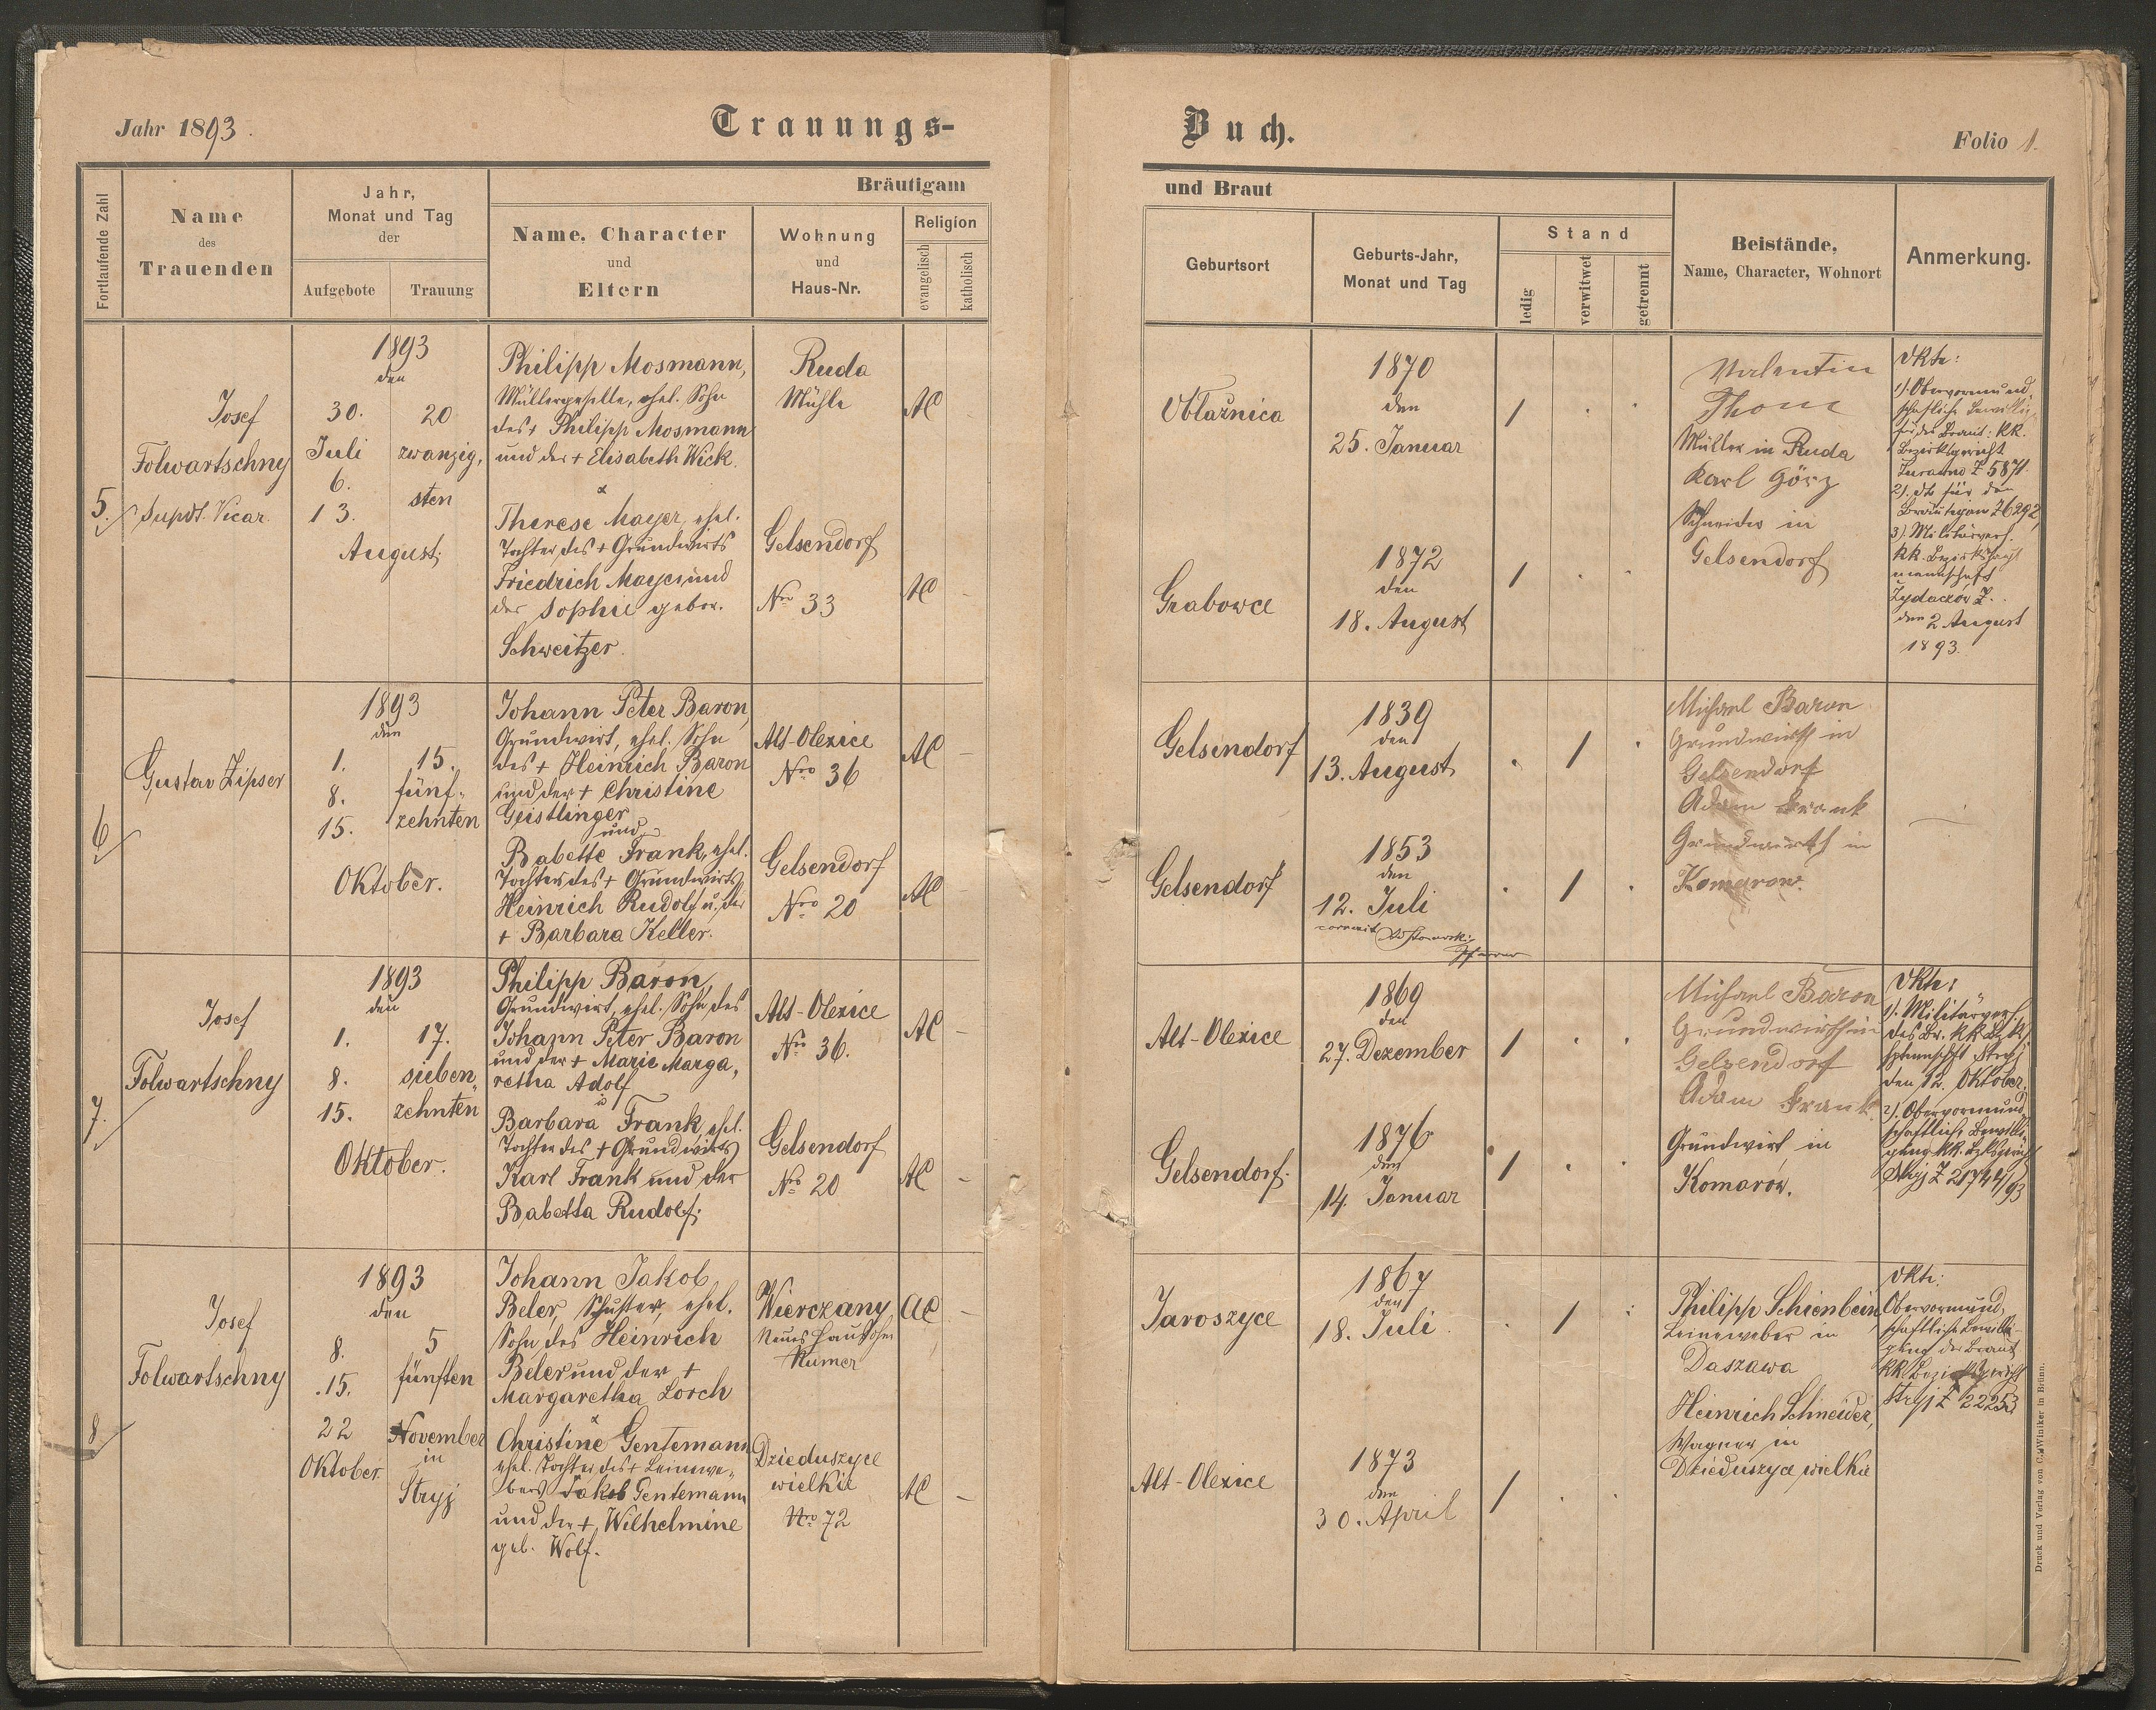 Jahr 1893.
Trauungs-
Fortlaufende Zahl
Name
des
Trauenden
Jahr,
Monat und Tag
der
Aufgebote
Trauung
Bräutigam
Name, Character
und
Eltern
Wohnung
und
Haus-Nr.
Religion
evangelisch
katholisch
5.
Josef
Folwartschny
Supdt. Vicar.
1893
den
30.
Juli
6.
13.
August
20
zwanzig,
sten
Philipp Mosmann,
Müllergeselle, ehel. Sohn
des + Philipp Mosmann
und der + Elisabeth Wick.
&
Therese Mayer, ehel.
Tochter des + Grundwirts
Friedrich Mayer und
der Sophie gebor.
Schweitzer.
Ruda
Mühle
Gelsendorf
Nro 33
AC
AC
6
Gustav Zipser
1893
den
1.
8.
15.
Oktober.
15.
fünf-
zehnten
Johann Peter Baron,
Grundwirt, ehel. Sohn
des + Heinrich Baron
und der + Christine
Geistlinger
und
Babette Frank, ehel.
Tochter des + Grundwirts
Heinrich Rudolf u. der
+ Barbara Keller.
Alt-Olexice
Nro 36
Gelsendorf
Nro 20
AC
AC
7.
Josef
Folwartschny
1893
den
1.
8.
15.
Oktober.
17.
sieben,
zehnten
Philipp Baron,
Grundwirt, ehel. Sohn des
Johann Peter Baron
und der + Marie Marga,
retha Adolf
u
Barbara Frank, ehel.
Tochter des + Grundwirts
Karl Frank und der
Babetta Rudolf.
Alt-Olexice
Nro 36.
Gelsendorf
Nro 20
AC
AC
8.
Josef
Folwartschny
1893
den
8.
15.
22
Oktober
5
fünften
November
in
Stryj
Johann Jakob
Beler, Schuster, ehel.
Sohn des Heinrich
Beler und der +
Margaretha Lorch
&
Christine Gentemann
ehel. Tochter des + Leinwe-
bers Jakob Gentemann
und der + Wilhelmine
geb. Wolf.
Wierczany
Neues Haus ohne
Numer
Dzieduszyce
wielkie
Nro 72
AC
AC
Buch.
Folio 1.
und Braut
Geburtsort
Geburts-Jahr,
Monat und Tag
Stand
ledig
verwitwet
getrennt
Beistände,
Name, Character, Wohnort
Anmerkung.
Oblažnica
1870
den
25. Januar
Grabowce
1872
den
18. August
Valentin
Thom
Müller in Ruda
Karl Görz
Schneider in
Gelsendorf
Dkte:
1). Obervormund,
schaftliche Bewillig.
für die Braut: kk.
Bezirksgericht
Z 5871.
2). dto für den
Bräutigam Z 6292,
3). Militärverh.
kk. Bezirkshaupt
mannschaft
Zydaczów Z.
den 2 August
1893.
Gelsendorf
1839
den
13. August
Gelsendorf
1853
den
12. Juli
Pfarrer
Michael Baron
Grundwirth in
Gelsendorf
Adam Frank
Grundwirth in
Komarow.
Alt-Olexice
1869
den
27. Dezember
Gelsendorf.
1876
den
14. Januar
Michael Baron
Grundwirth in
Gelsendorf
Adam Frank
Grundwirt in
Komarów.
Dkte:
1). Militärverh.
Stryj
den 12. Oktober.
2). Obervormund,
schaftliche Bewilli,
gung kk.
Stryj Z 21744/93
Jaroszyce
1867
den
18. Juli
Alt-Olexice
1873
den
30. April
Philipp Schienbein,
Leineweber in
Daszawa
Heinrich Schneider,
Wagner in
Dzieduszyce wielkie
Dkte:
Obervormund,
schaftliche Bewilli-
gung der Braut
kk Bezirksgericht
Stryj Z 22253
Druck und Verlag von C. Winiker in Brünn.